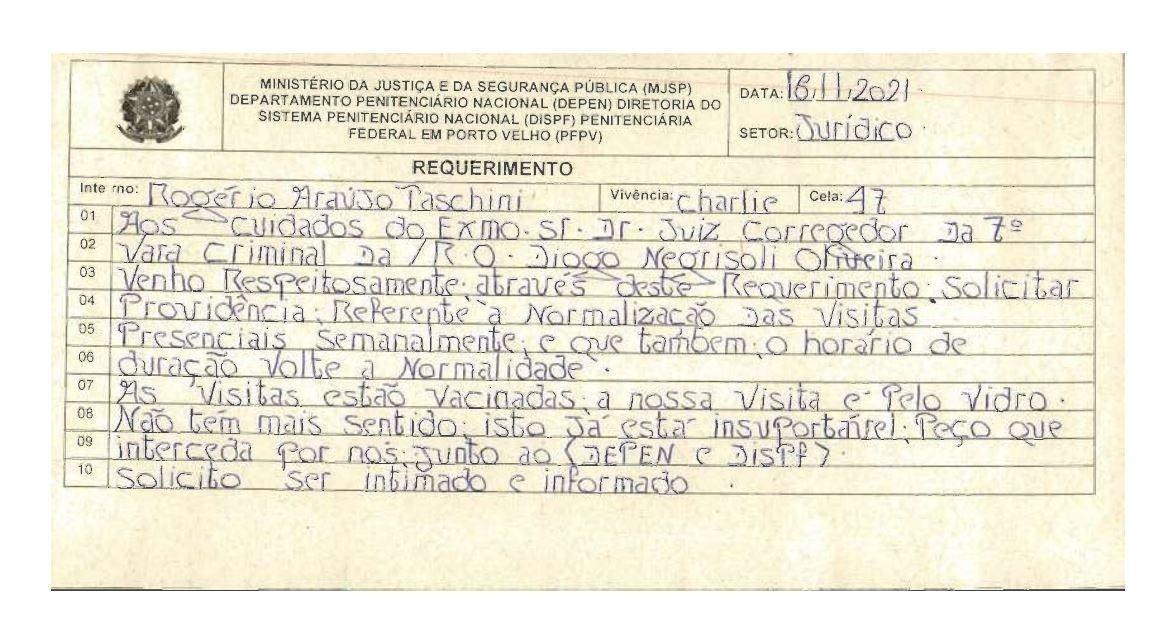 MINISTÉRIO DA JUSTIÇA E DA SEGURANÇA PÚBLICA (MJSP)
DEPARTAMENTO PENITENCIÁRIO NACIONAL (DEPEN) DIRETORIA DO
SISTEMA PENITENCIÁRIO NACIONAL (DISPF) PENITENCIÁRIA
FEDERAL EM PORTO VELHO (PFPV)
DATA: 16/11/2021
SETOR: Jurídico
REQUERIMENTO
Interno: Rogério Araújo Taschini Vivência: charlie Cela: 47
01 Aos cuidados do Exmo. Sr. Dr. Juiz Corregedor Da 7º
02 Vara Criminal Da /R.O. Diogo Negrisoli Oliveira.
03 Venho Respeitosamente, através deste Requerimento, Solicitar
04 Providência, Referente a Normalização Das Visitas
05 Presenciais Semanalmente, e que também, o horário de
06 duração Volte a Normalidade.
07 As Visitas estão Vacinadas, a nossa Visita é Pelo Vidro.
08 Não tem mais sentido, isto Já está insuportável, Peço que
09 interceda por nós junto ao (DEPEN e DISPF).
10 Solicito ser intimado e informado.